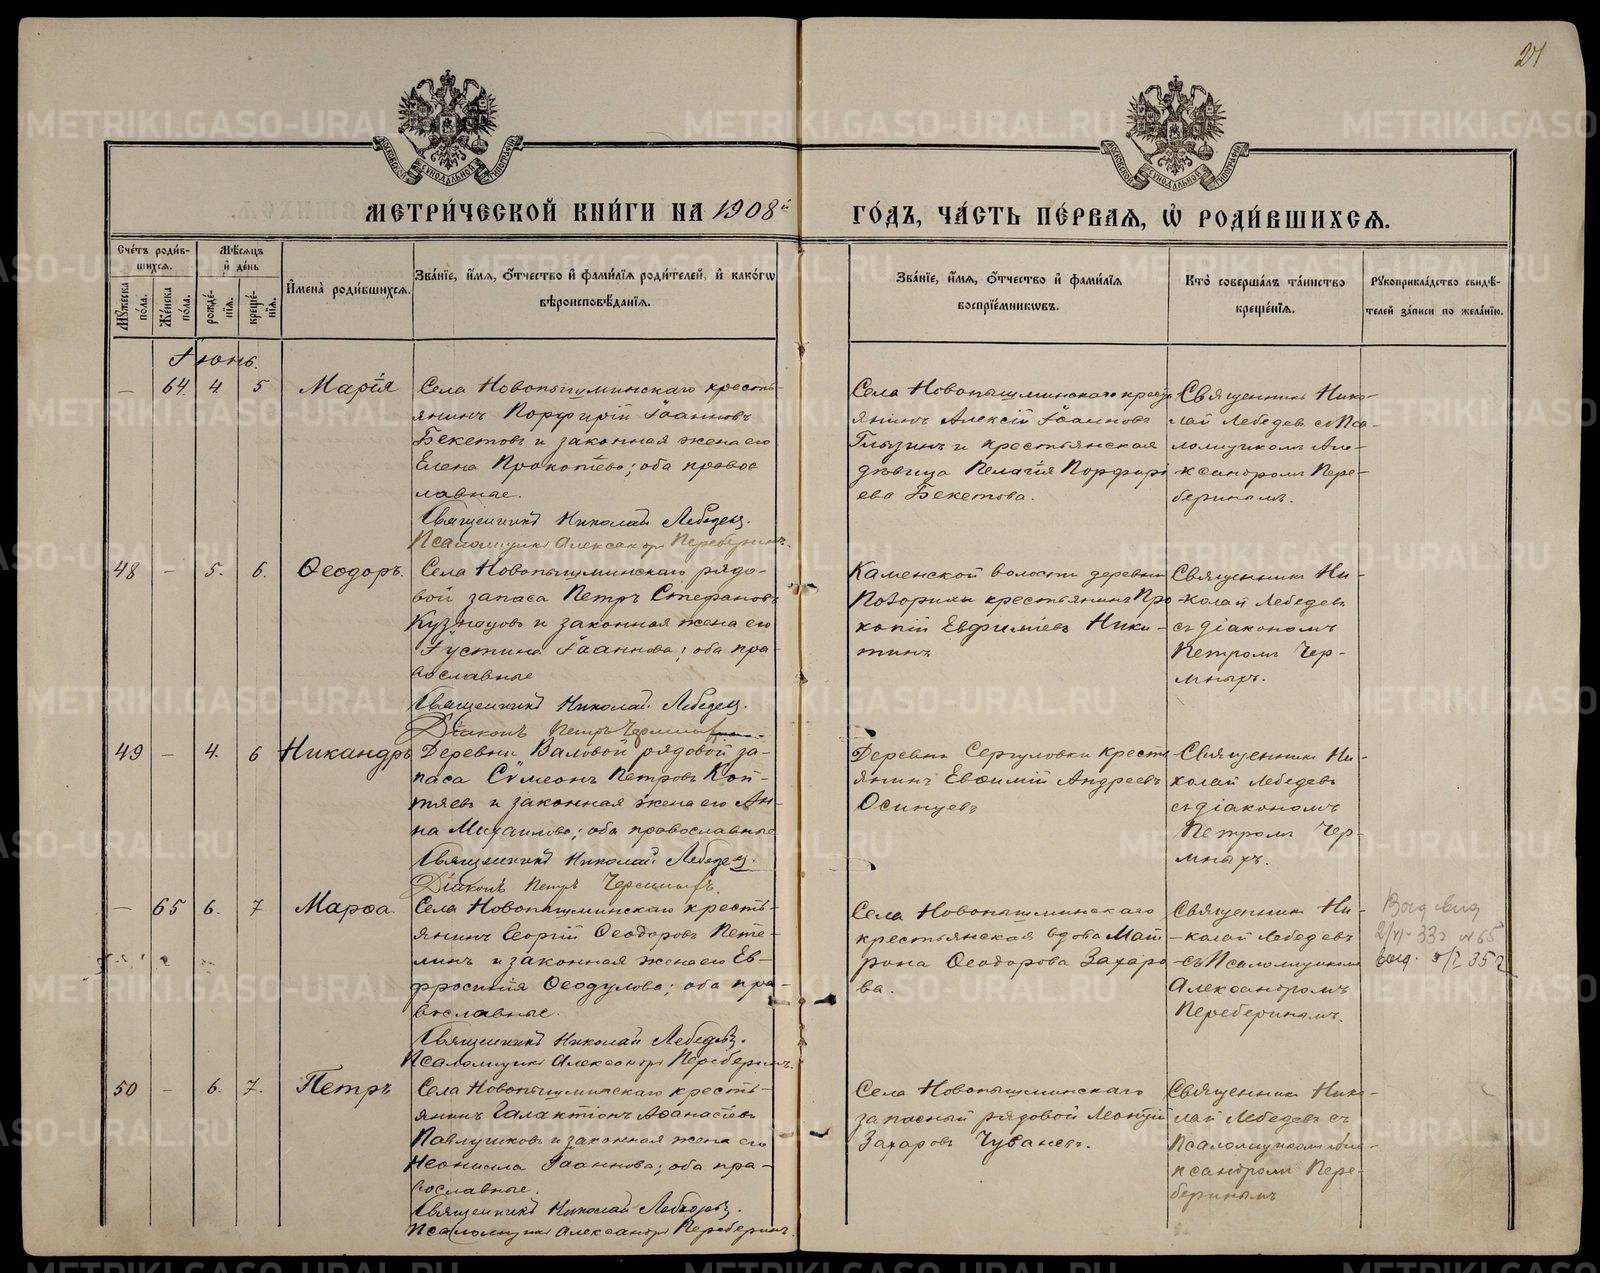 21
МЕТРИ́ЧЕСКОЙ КНИ́ГИ НА 1908й
ГО́ДЪ, ЧА́СТЬ ПЕ́РВАѦ, Ѡ҆ РОДИ́ВШИХСѦ.
Сче́тъ роди́в-
шихсѧ.
Мꙋжеска по́ла.
Же́нска по́ла.
Мѣ́сѧцъ и҆ де́нь
рожде́-нїѧ.
креще́-нїѧ.
И҆мена̀ роди́вшихсѧ.
Зва́нїе, и҆́мѧ, ѻ҆́тчество и҆ фами́лїѧ роди́телей, и҆ како́гѡ
вѣроисповѣ́данїѧ.
Зва́нїе, и҆́мѧ, ѻ҆́тчество и҆ фами́лїѧ
воспрїе́мникѡвъ.
Кто̀ соверша́лъ та́инство
креще́нїѧ.
Рꙋкоприкла́дство свидѣ́-
телей за́писи по жела́нїю.
Іюнь.
— 64. 4. 5 Марія
Села Новопышминскаго кресть-
янинъ Порфирій Іоанновъ
Бекетовъ и законная жена его
Елена Прокопіева; оба право
славные.
Священникъ Николай Лебедевъ.
Псаломщикъ Александръ Переберинъ.
Села Новопышминскаго кресть
янинъ Алексій Іоанновъ
Глызинъ и крестьянская
дѣвица Пелагія Порфирі
ева Бекетова.
Священникъ Нико-
лай Лебедевъ съ Пса-
ломщикомъ Але-
ксандромъ Пере-
беринымъ.
48 — 5. 6. Ѳеодоръ.
Села Новопышминскаго рядо-
вой запаса Петръ Стефановъ
Кузнецовъ и законная жена его
Іустина Іоаннова; оба пра-
вославные
Священникъ Николай Лебедевъ.
Діаконъ Петръ Черемныхъ.
Каменской волости деревни
крестьянинъ Про
копій Евфиміевъ Ники-
тинъ
Священникъ Ни-
колай Лебедевъ
съ діакономъ
Петромъ Чер-
мныхъ.
49 — 4. 6 Никандръ
Деревни Валовой рядовой за-
паса Сѵмеонъ Петровъ Коп-
тяевъ и законная жена его Ан-
на Михаилова; оба православные
Священникъ Николай Лебедевъ.
Діаконъ Петръ Черемныхъ.
Деревни Сергуловки кресть
янинъ Евѳимій Андреевъ
Осинцевъ
Священникъ Ни-
колай Лебедевъ
съ діакономъ
Петромъ Чер-
мныхъ.
— 65 6. 7 Марѳа
Села Новопышминскаго кресть-
янинъ Георгій Ѳеодоровъ Пете-
линъ и законная жена его Ев-
фросинія Ѳеодулова; оба пра-
вославные.
Священникъ Николай Лебедевъ.
Псаломщикъ Александръ Переберинъ.
Села Новопышминскаго
крестьянская вдова Мат
рона Ѳеодорова Захаро
ва.
Священникъ Ни-
колай Лебедевъ
съ Псаломщикомъ
Александромъ
Переберинымъ.
2/VI-33г №65
35 г
50 — 6. 7. Петръ
Села Новопышминскаго кресть-
янинъ Галактіонъ Аѳанасіевъ
Павлушковъ и законная жена его
Неонилла Іоаннова; оба пра-
вославные.
Священникъ Николай Лебедевъ.
Псаломщикъ Александръ Переберинъ.
Села Новопышминскаго
запасный рядовой Леонтій
Захаровъ Чуваневъ.
Священникъ Нико-
лай Лебедевъ съ
Псаломщикомъ Але-
ксандромъ Пере-
беринымъ
METRIKI.GASO-URAL.RU